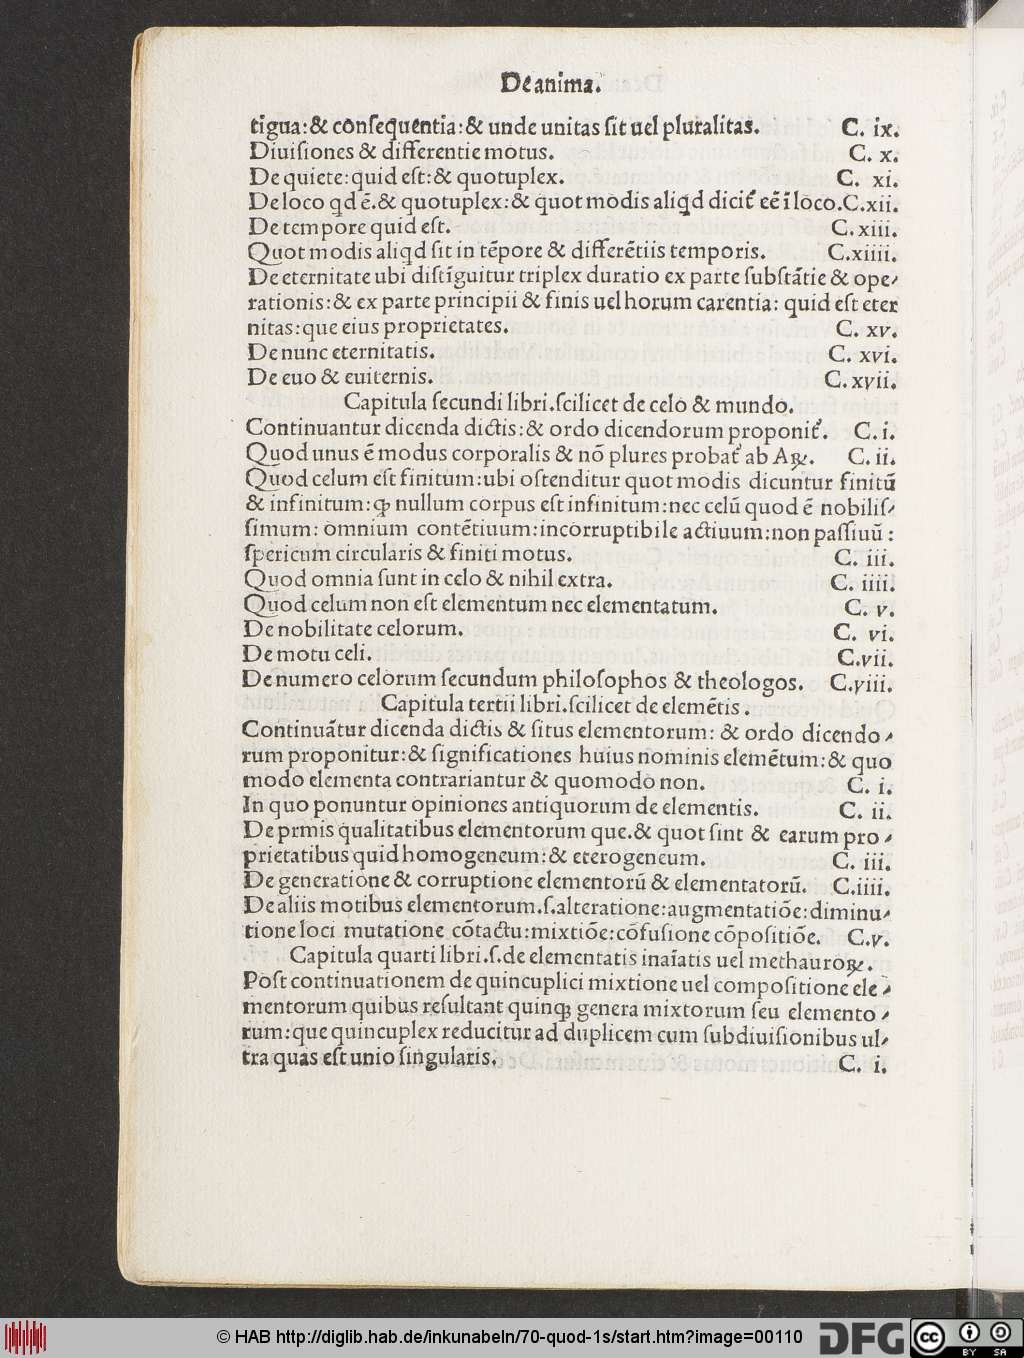 De anima.
tigua:& conſequentia:& unde unitas ſit uel pluralitas. C. ix.
Diuiſiones & differentie motus. C. x.
De quiete:quid eſt:& quotuplex. C. xi.
De loco qd ē.& quotuplex:& quot modis aliqd dicit̉ eē ī loco.C.xii.
De tempore quid eſt. C. xiii.
Quot modis aliqd ſit in tēpore & differētiis temporis. C.xiiii.
De eternitate ubi diſtīguitur triplex duratio ex parte ſubſtātie & ope⸗
rationis:& ex parte principii & finis uel horum carentia: quid eſt eter
nitas:que eius proprietates. C. xv.
De nunc eternitatis. C. xvi.
De euo & euiternis. C. xvii.
Capitula ſecundi libri.ſcilicet de celo & mundo.
Continuantur dicenda dictis:& ordo dicendorum proponit̉. C. i.
Quod unus ē modus corporalis & nō plures probat̉ ab Aꝝ. C. ii.
Quod celum eſt finitum:ubi oſtenditur quot modis dicuntur finitū
& infinitum:ꝙ nullum corpus eſt infinitum:nec celū quod ē nobiliſ⸗
ſimum: omnium contētiuum:incorruptibile actiuum:non paſſiuū :
ſpericum circularis & finiti motus. C. iii.
Quod omnia ſunt in celo & nihil extra. C. iiii.
Quod celum non eſt elementum nec elementatum. C. v.
De nobilitate celorum. C. vi.
De motu celi. C.vii.
De numero celorum ſecundum philoſophos & theologos. C.viii.
Capitula tertii libri.ſcilicet de elemētis .
Continuātur dicenda dictis & ſitus elementorum: & ordo dicendo⸗
rum proponitur:& ſignificationes huius nominis elemētum:& quo
modo elementa contrariantur & quomodo non. C. i.
In quo ponuntur opiniones antiquorum de elementis. C. ii.
De prmis qualitatibus elementorum que.& quot ſint & earum pro⸗
prietatibus quid homogeneum:& eterogeneum. C. iii.
De generatione & corruptione elementorū & elementatorū. C.iiii.
De aliis motibus elementorum.ſ.alteratione:augmentatiōe:diminu⸗
tione loci mutatione cōtactu:mixtiōe:cōfuſione cōpoſitiōe. C.v.
Capitula quarti libri.ſ.de elementatis inaīatis uel methauroꝝ.
Poſt continuationem de quincuplici mixtione uel compoſitione ele⸗
mentorum quibus reſultant quinqꝫ genera mixtorum ſeu elemento⸗
rum:que quincuplex reducitur ad duplicem cum ſubdiuiſionibus ul⸗
tra quas eſt unio ſingularis. C. i.
© HAB http://diglib.hab.de/inkunabeln/70-quod-1s/start.htm?image=00110
DFG
cc BY SA